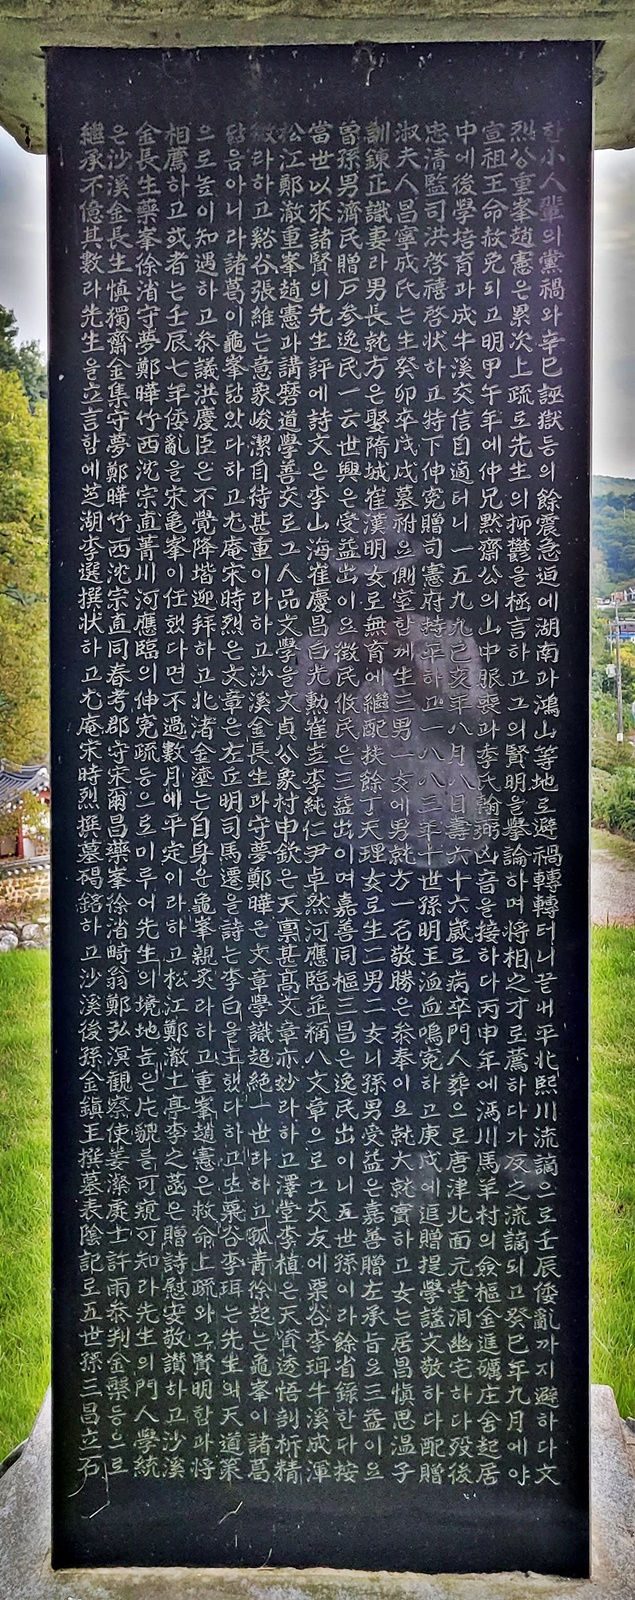 한小人輩의黨禍와辛巳誣獄등의餘震急迫에湖南과鴻山等地로避禍轉轉터니끝내平北熙川流謫으로壬辰倭亂까지避하다文
烈公重峯趙憲은累次上疏로先生의抑鬱을極言하고그의賢明을擧論하며將相之才로薦하다가反之流謫되고癸巳年九月에야
宣祖王命赦免되고明甲午年에仲兄黙齋公의山中服喪과李氏翰弼凶音을接하다丙申年에沔川馬羊村의僉樞金進礪庄舍起居
中에後學培育과成牛溪交信自適터니一五九九己亥年八月八日壽六十六歲로病卒門人葬으로唐津北面元堂洞幽宅하다歿後
忠淸監司洪啓禧啓狀하고特下伸寃贈司憲府持平하고一八八三年十世孫明王洫血鳴寃하고庚戌에追贈提學諡文敬하다配贈
淑夫人昌寧成氏는生癸卯卒戊戌墓祔으側室함께生三男一女에男就方一名敬勝은參奉이요就大就實하고女는居昌愼思温子
訓鍊正識妻라男長就方은娶隋城崔漢明女로無育에繼配扶餘丁天理女로生二男二女니孫男受益은嘉善贈左承旨요三益이요
曾孫男濟民贈戶參逸民一云世興은受益出이요徵民俊民은三益出이며嘉善同樞三昌은逸民出이니五世孫이라餘省錄한다按
當世以來諸賢의先生評에詩文은李山海崔慶昌白光勳崔岦李純仁尹卓然河應臨並稱八文章으로그交友에栗谷李珥牛溪成渾
松江鄭澈重峯趙憲과講磨道學善交로그人品文學을文貞公象村申欽은天禀甚高文章亦妙라하고澤堂李植은天資透悟剖析精
微라하고谿谷張維는意象峻潔自待甚重이라하고沙溪金長生과守夢鄭曄은文章學識超絶一世라하고孤靑徐起는龜峯이諸葛
닮음아니라諸葛이龜峯닮았다하고尤庵宋時烈은文章은左丘明司馬遷을詩는李白을主했다하고또栗谷李珥는先生와天道策
으로높이知遇하고參議洪慶臣은不覺降堦迎拜하고北渚金瑬는自身은龜峯親炙라하고重峯趙憲은救命上疏와그賢明함과將
相薦하고或者는壬辰七年倭亂을宋龜峯이任했다면不過數月에平定이라하고松江鄭澈土亭李之菡은贈詩慰安敬讚하고沙溪
金長生藥峯徐渻守夢鄭曄竹西沈宗直菁川河應臨의伸寃疏등으로미루어先生의境地높은片貌를可窺可知라先生의門人學統
은沙溪金長生愼獨齋金集守夢鄭曄竹西沈宗直同春考郡守宋爾昌藥峯徐渻畸翁鄭弘溟觀察使姜澯處士許雨參判金槃등으로
繼承不億其數라先生을立言함에芝湖李選撰狀하고尤庵宋時烈撰墓碣銘하고沙溪後孫金鎭王撰墓表陰記로五世孫三昌立石